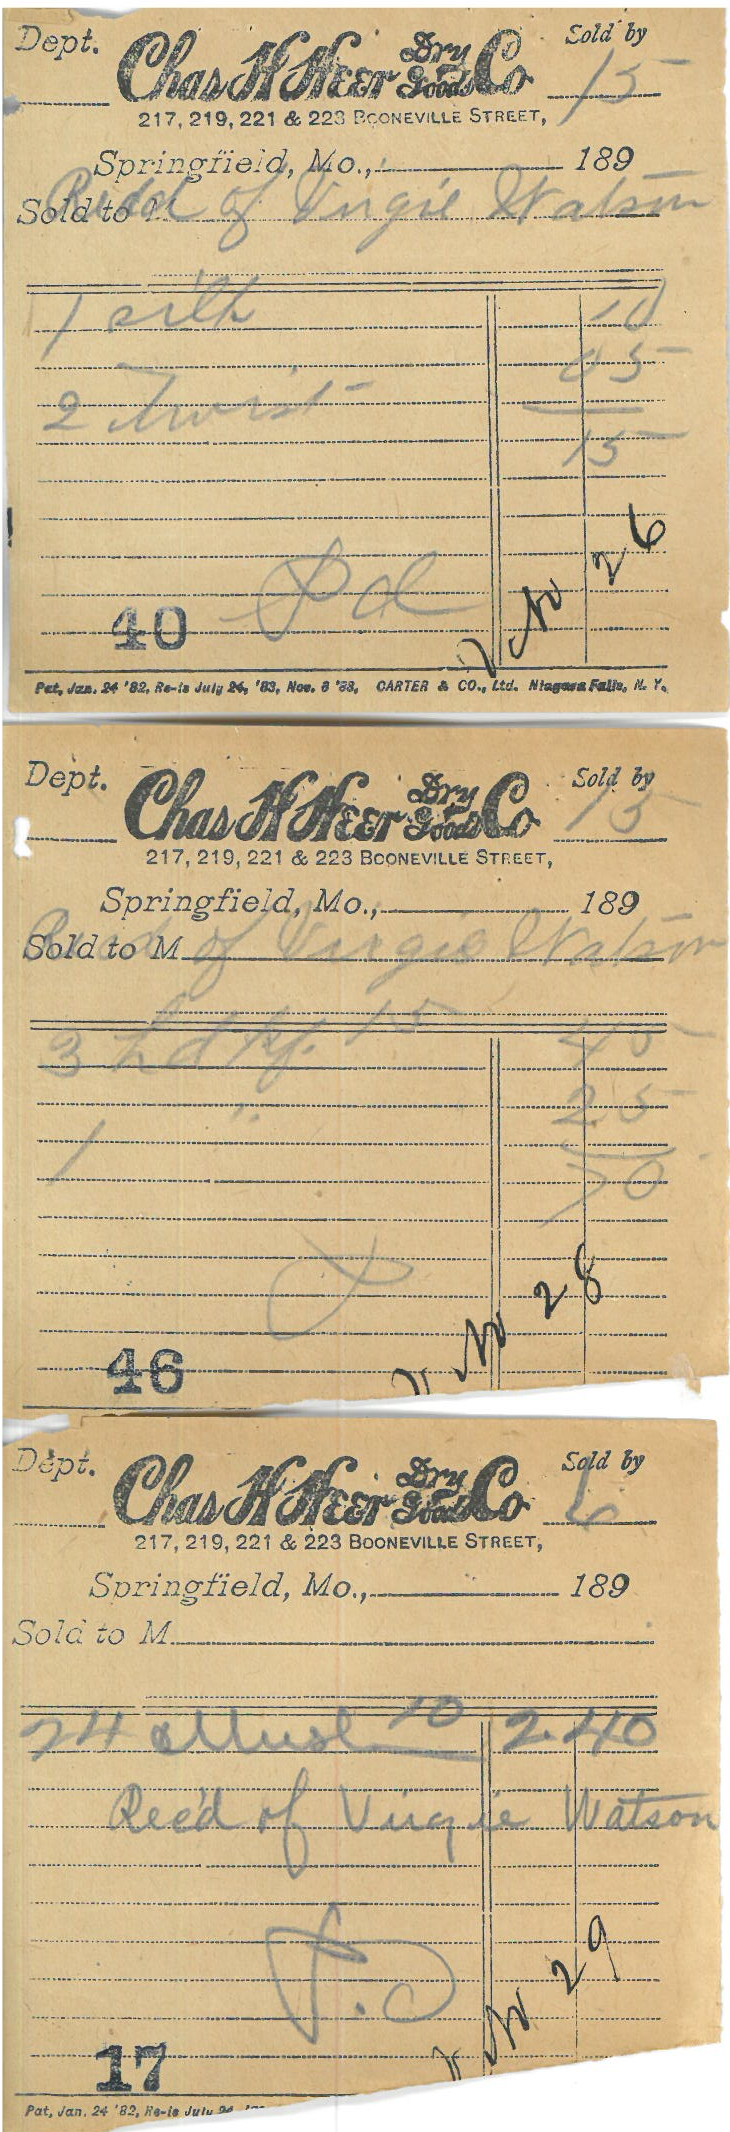 Dept. Chas H Heer Dry Goods Co Sold by
15
217, 219, 221 & 223 BOONEVILLE STREET,
Springfield, Mo., 189
Sold to M
Recd of Virgie Watson
1 silk 10
05
2 Twist
15
Pd
No 26
40
Pat, Jan. 24 '82, Re-is July 24, '83, Nov. 6 '88, CARTER & CO., Ltd. Niagara Falls, N. Y.
Dept. Chas H Heer Dry Goods Co Sold by
15
217, 219, 221 & 223 BOONEVILLE STREET,
Springfield, Mo., 189
Sold to M
Recd of Virgie Watson
3 hdkf. 15 45
1 " 25
70
No 28
46
Dept. Chas H Heer Dry Goods Co Sold by
6
217, 219, 221 & 223 BOONEVILLE STREET,
Springfield, Mo., 189
Sold to M
24 Musl 10 2.40
Rec'd of Virgie Watson
No 29
17
Pat, Jan. 24 '82, Re-is July 24